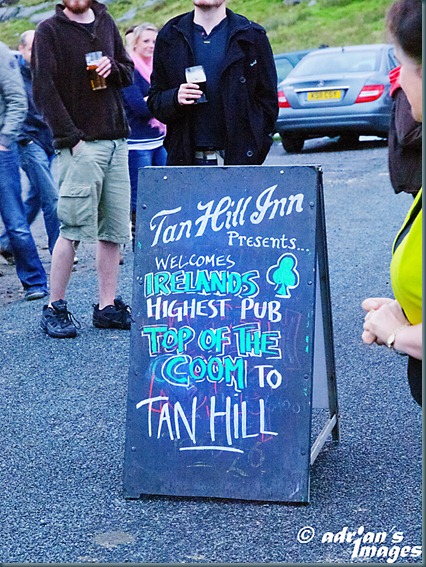 Tan Hill Inn
Presents...
WELCOMES
IRELANDS
HIGHEST PUB
TOP OF THE
COOM TO
TAN HILL
© adrian's
Images